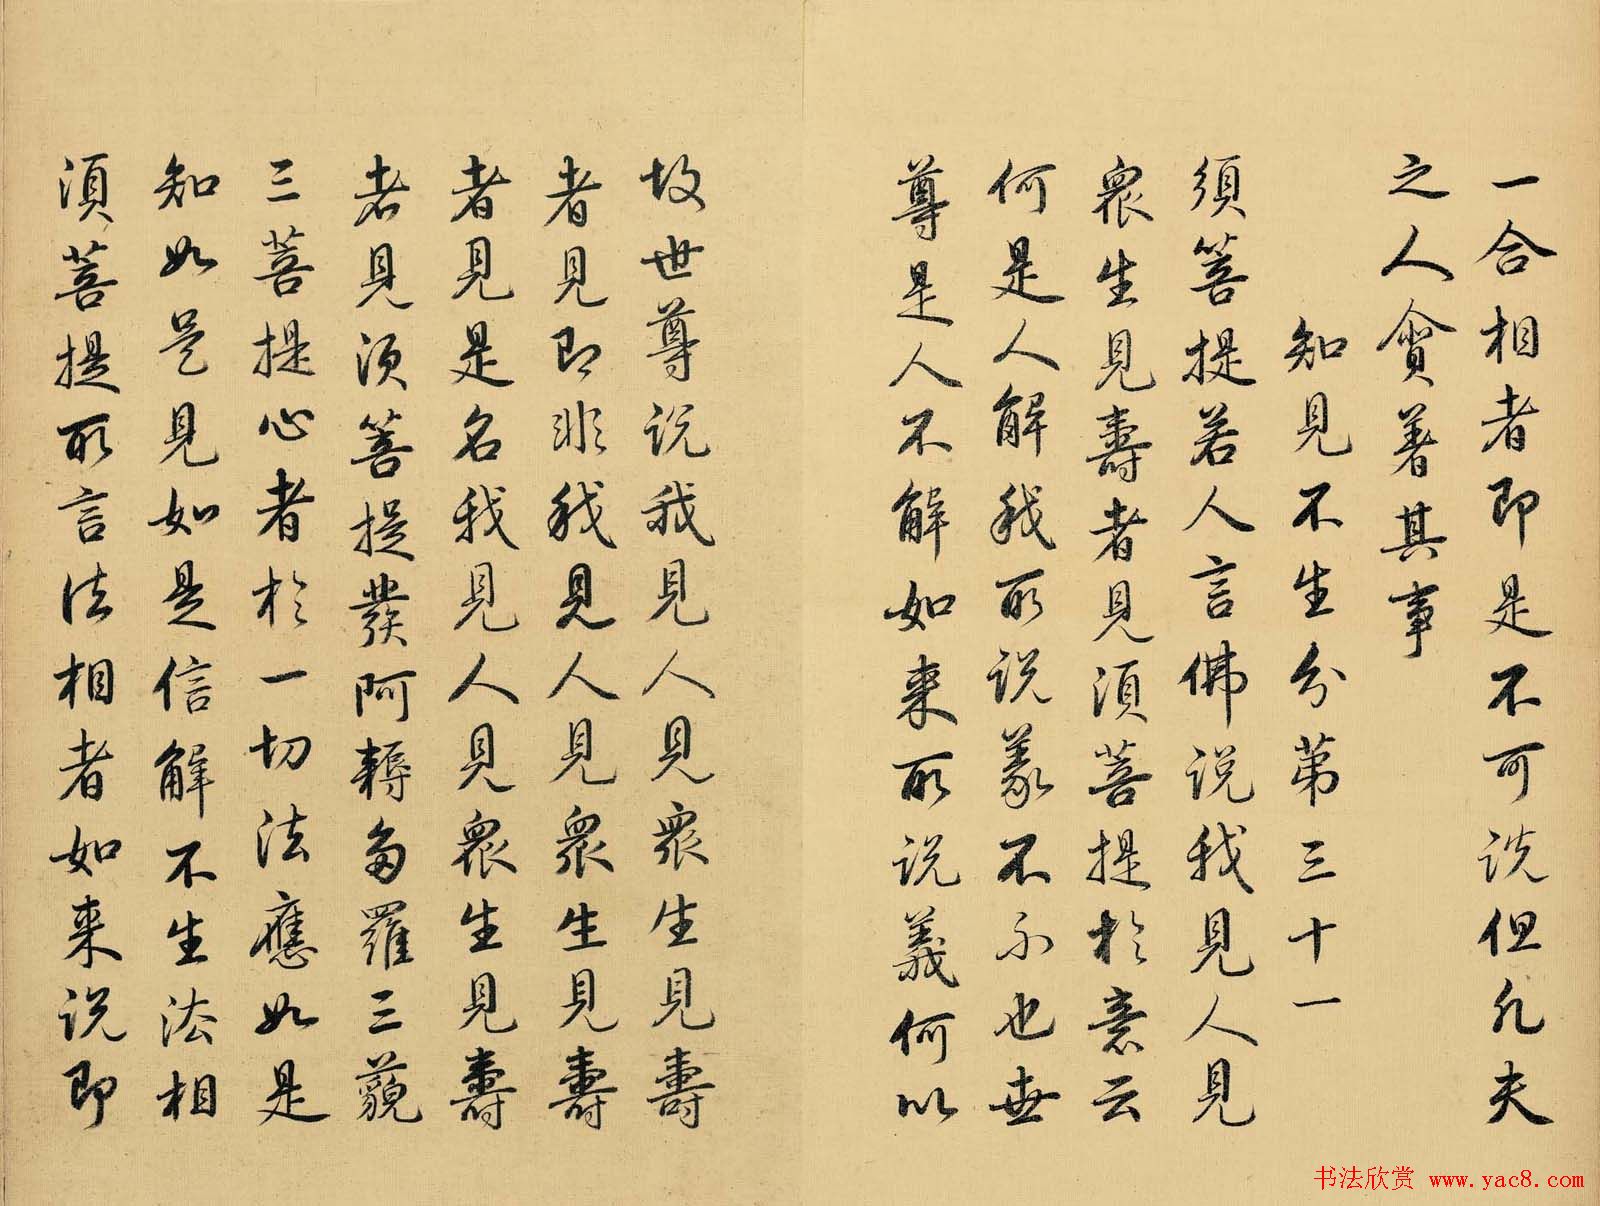 一合相者即是不可説但凡夫
之人貪著其事
知見不生分第三十一
須菩提若人言佛説我見人見
衆生見壽者見須菩提於意云
何是人解我所説義不不也世
尊是人不解如来所説義何以
故世尊説我見人見衆生見壽
者見即非我見人見衆生見壽
者見是名我見人見衆生見壽
者見須菩提發阿耨多羅三藐
三菩提心者於一切法應如是
知如是見如是信解不生法相
須菩提所言法相者如来説即
书法欣赏 www.yac8.com